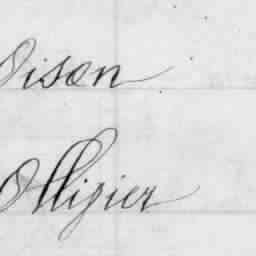 Oison
Olligier